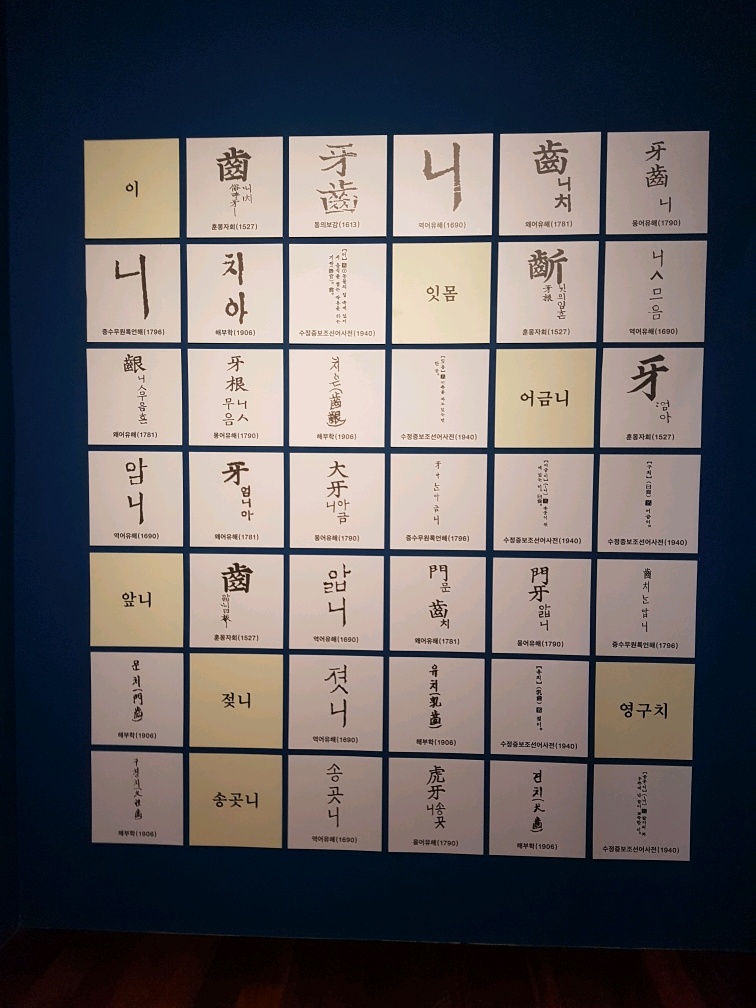 이
齒
니치
훈몽자회(1527)
牙
齒
동의보감(1613)
니
역어유해(1690)
齒
니
치
왜어유해(1781)
牙
齒
니
몽어유해(1790)
니
증수무원록언해(1796)
치
아
해부학(1906)
수정증보조선어사전(1940)
잇몸
齗
牙根
훈몽자회(1527)
니
ㅅ
므
음
역어유해(1690)
齦
니ㅅ무음흔
왜어유해(1781)
牙
根
무음
니ㅅ
몽어유해(1790)
치은(齒齦)
해부학(1906)
수정증보조선어사전(1940)
어금니
牙
:엄
아
훈몽자회(1527)
암
니
역어유해(1690)
牙
엄니아
왜어유해(1781)
大
牙
니
아금
몽어유해(1790)
증수무원록언해(1796)
수정증보조선어사전(1940)
수정증보조선어사전(1940)
앞니
齒
훈몽자회(1527)
앏
니
역어유해(1690)
門
문
齒
치
왜어유해(1781)
門
牙
앏
니
몽어유해(1790)
齒
치
는
앏
니
증수무원록언해(1796)
문치(門齒)
해부학(1906)
젖니
졋
니
역어유해(1690)
유치(乳齒)
해부학(1906)
수정증보조선어사전(1940)
영구치
해부학(1906)
송곳니
송
곳
니
역어유해(1690)
虎
牙
니
송곳
몽어유해(1790)
견치(犬齒)
해부학(1906)
수정증보조선어사전(1940)